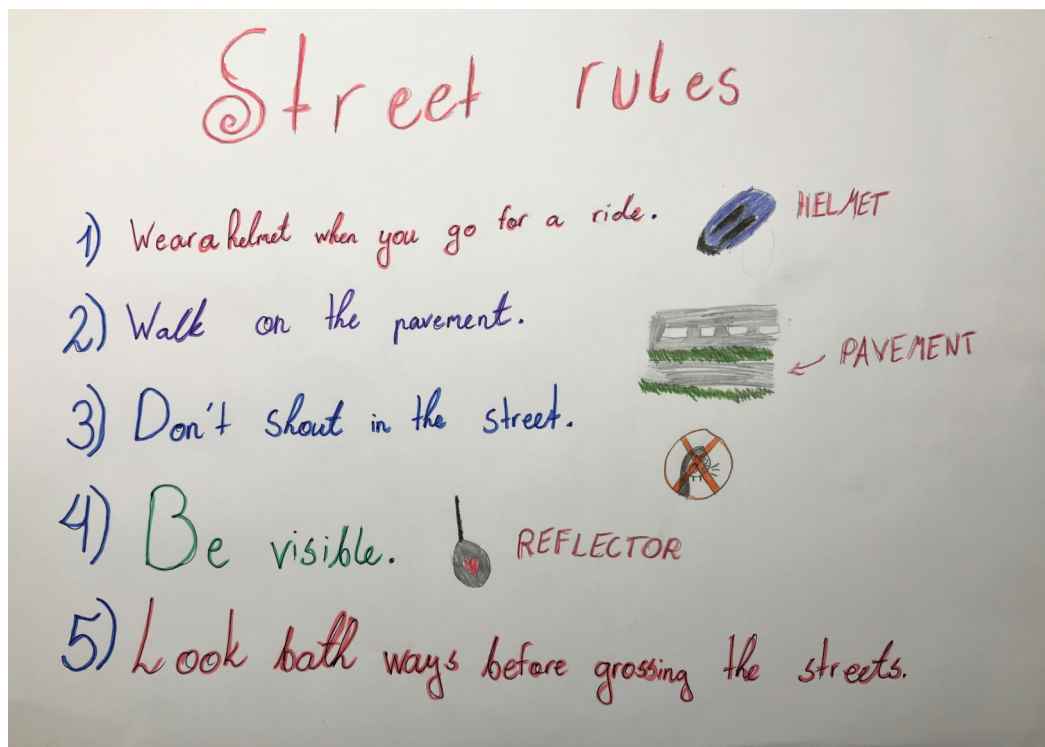 Street rules
1) Wear a helmet when you go for a ride.
HELMET
2) Walk on the pavement.
PAVEMENT
3) Don't shout in the street.
4) Be visible.
REFLECTOR
5) Look bath ways before grossing the streets.